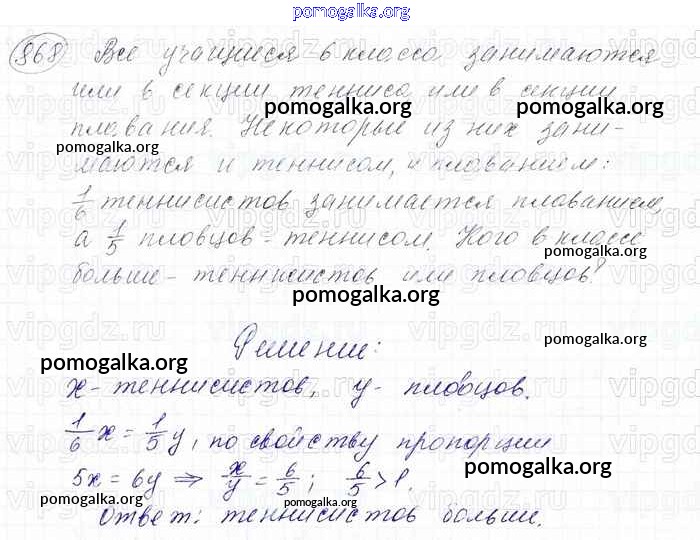 pomogalka.org
868 Все учащиеся 6 класса занимаются
или в секции тенниса или в секции
pomogalka.org pomogalka.org
плавания. Некоторые из них зани-
pomogalka.org
маются и теннисом, и плаванием:
1/6 теннисистов занимается плаванием,
а 1/5 пловцов - теннисом. Кого в классе
pomogalka.org
больше - теннисистов или пловцов?
pomogalka.org
Решение:
pomogalka.org pomogalka.org
x - теннисистов, y - пловцов.
1/6 x = 1/5 y, по свойству пропорции
pomogalka.org
5x = 6y ⇒ x/y = 6/5; 6/5 > 1.
pomogalka.org pomogalka.org
Ответ: теннисистов больше.
pomogalka.org
vipgdz.ru